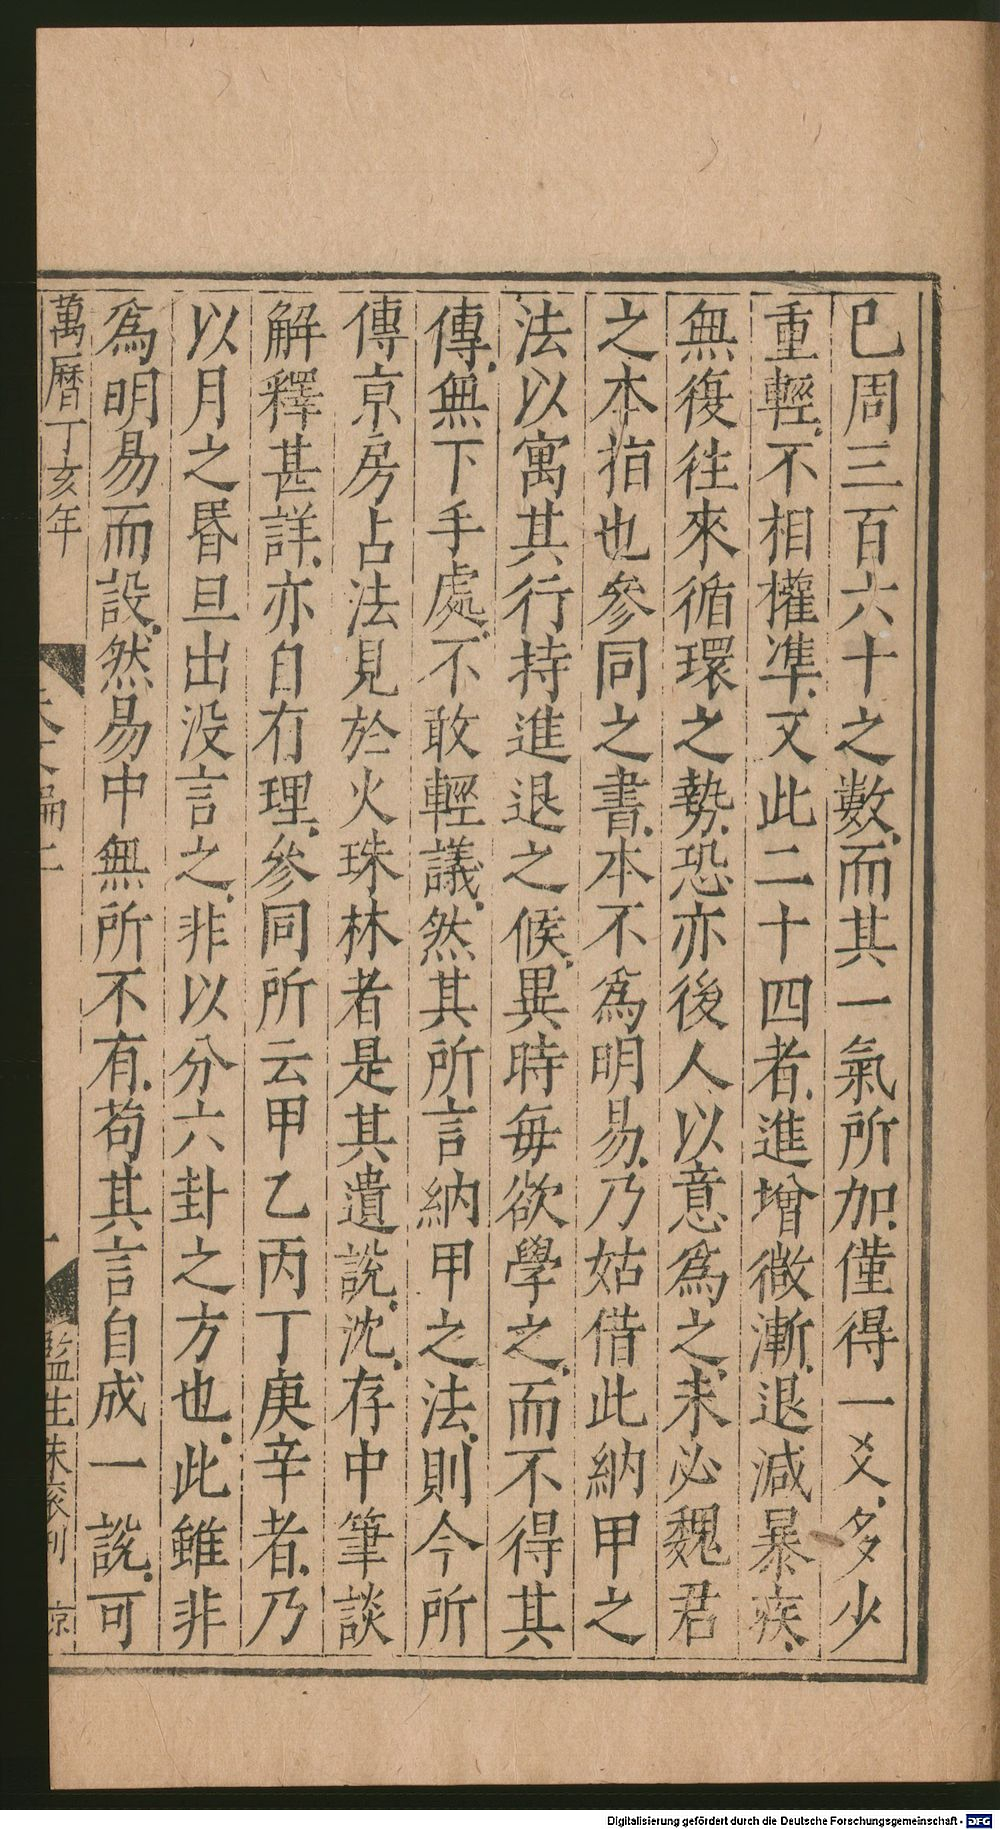 已周三百六十之數而其一氣所加僅得一爻多少
重輕不相權準又此二十四者進增微漸退減暴疾
無復往來循環之勢恐亦後人以意為之未必魏君
之本指也參同之書本不為明易乃姑借此納甲之
法以寓其行持進退之候異時每欲學之而不得其
傳無下手處不敢輕議然其所言納甲之法則今所
傳京房占法見於火珠林者是其遺說沈存中筆談
解釋甚詳亦自有理參同所云甲乙丙丁庚辛者乃
以月之昬旦出沒言之非以分六卦之方也此雖非
為明易而設然易中無所不有苟其言自成一說可
萬曆丁亥年
監生朱
Digitalisierung gefördert durch die Deutsche Forschungsgemeinschaft - DFG